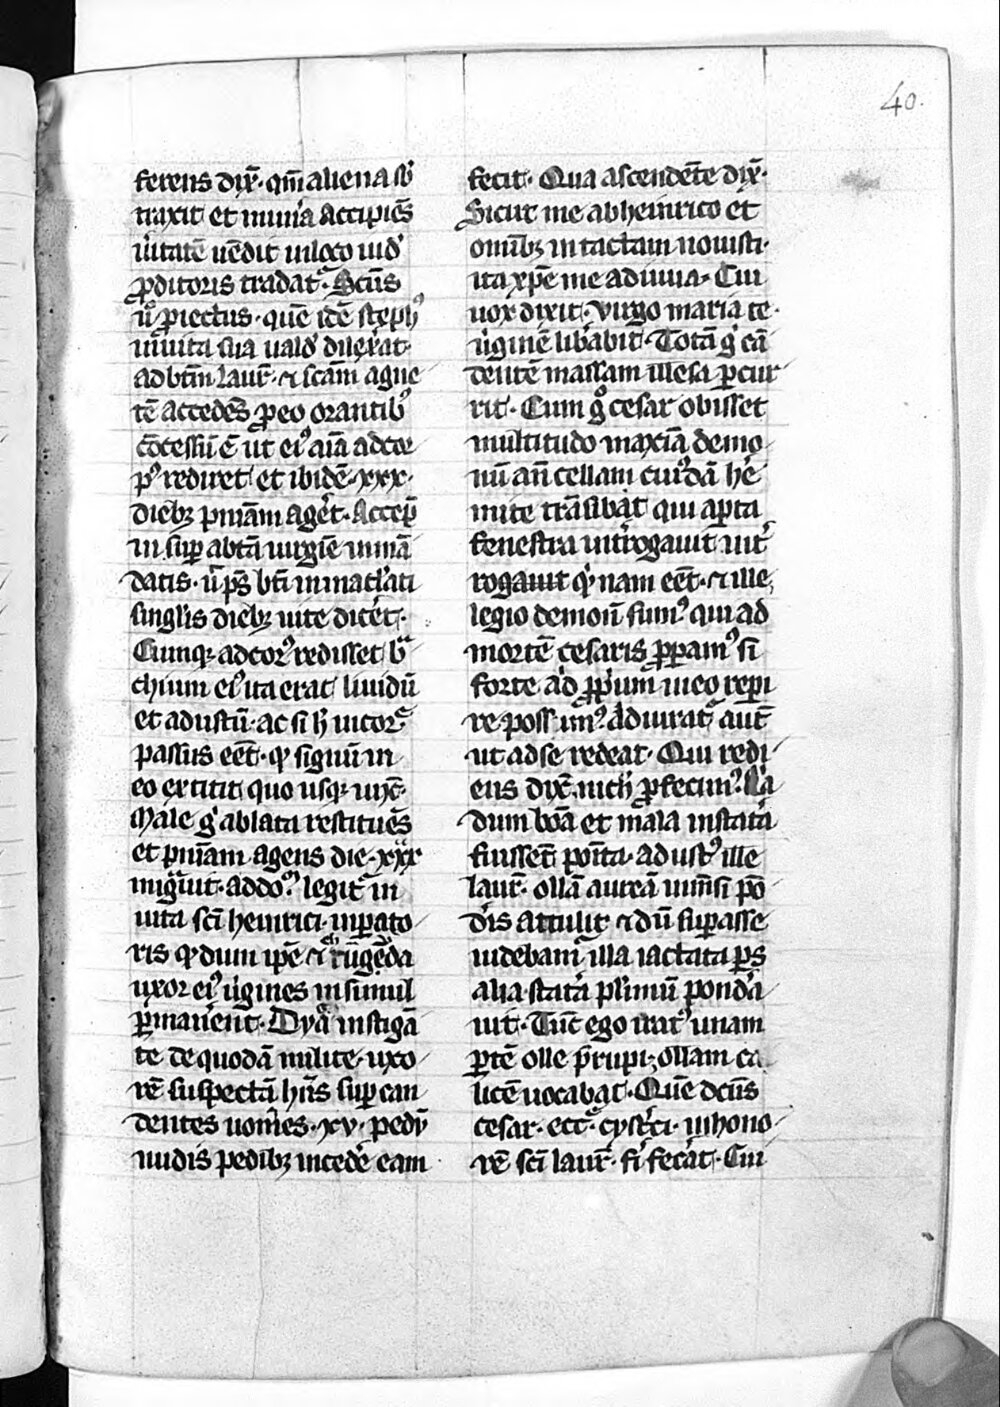 40.
ferens dix̄· qm̄ aliena sb᷒
traxit et mun᷒a accipiēs
u᷒itatē uēdit in loco iud᷒
ꝓditoris tradat᷒· Scūs
u᷒ ꝓiectus· quē idē steph᷒
in uita sua uald᷒ dilex᷒at·
ad btm̄ laur̄· ⁊ scām agne
tē accedēs ꝓ eo orantib᷒
cōcessū ē ut ei᷒ aīa ad cor
p᷒ rediret et ibidē· xxx·
dieb; pniam̄ ag᷒et· Accep̄
insuꝑ a btā uirgīe in mā
datis· u᷒ p̄s bt̄i inmaclati
singl᷒is dieb; uite dic᷒et·
Cumq; ad cor᷒ redisset b᷒
chium ei᷒ ita erat liuidū
et adustū· ac si h̄ in cor᷒e
passus eēt· qd᷒ signū in
eo extitit quo usq; uix̄·
Male g᷒ ablata restituēs
et pniam̄ agens die· xxx
miguit· ad do᷒· legit᷒ in
uita sc̄i heinrici inꝑato
ris qd᷒ dum ip̄e ⁊ rūgēda
uxor ei᷒ u᷒gines insimul
ꝑmaner̄ent· Dya᷒ instigā
te de quodā milite· uxo
rē suspectā hn̄s suꝑ can
dentes uom᷒es· xv· pedū
nudis pedib; inced᷒e eam
fecit· Qua ascendēte dix̄·
Sicut me ab heinrico et
omīb; intactam nouisti·
ita xp̄e me adiuua· Cui
uox dixit· virgo maria te
u᷒ginē lib᷒abit· Totā g᷒ cā
dentē massam illesa ꝑcur
rit· Cum g᷒ cesar obisset
multitudo maxīa demo
nū an̄ cellam cui᷒dā he᷒
mite trāsibat qui aꝑta
fenestra int᷒rogauit int᷒
rogauit q᷒ nam eēt· ⁊ ille
legio demonū sum᷒ qui ad
mortē cesaris ꝓꝑam᷒ si
forte ad ꝓpium in eo reꝑi
re possim᷒ Adiurat᷒ aut̄
ut ad se redeat· Qui redi
ens dix̄· nich̄ ꝓfecim᷒· Nā
dum bōa et mala in stat᷒a
fuissēt poīta· adust᷒ ille
laur̄· ollā aureā inmēsi pō
d᷒is attulit ⁊ dū suꝑasse
uidebam᷒ illa iactata ꝑs
alia stat᷒a pl᷒imū pond᷒a
uit· Tūc ego irat᷒ unam
ꝑtē olle p̄rupi; ollam ca
licē uocabat· Quē dcūs
cesar· ecc᷒ cystēci in hono
rē sc̄i laur̄· fi᷒ fec᷒at· Cui